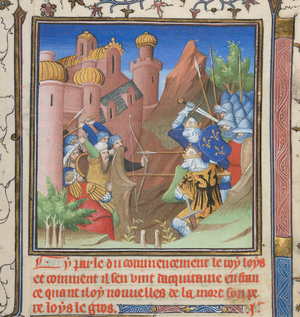 Cy parle du commencement le roy loys
et comment il sen vint dacquitaine en fran
ce quant il oy nouvelles de la mort son pe
re loys le gros. x.